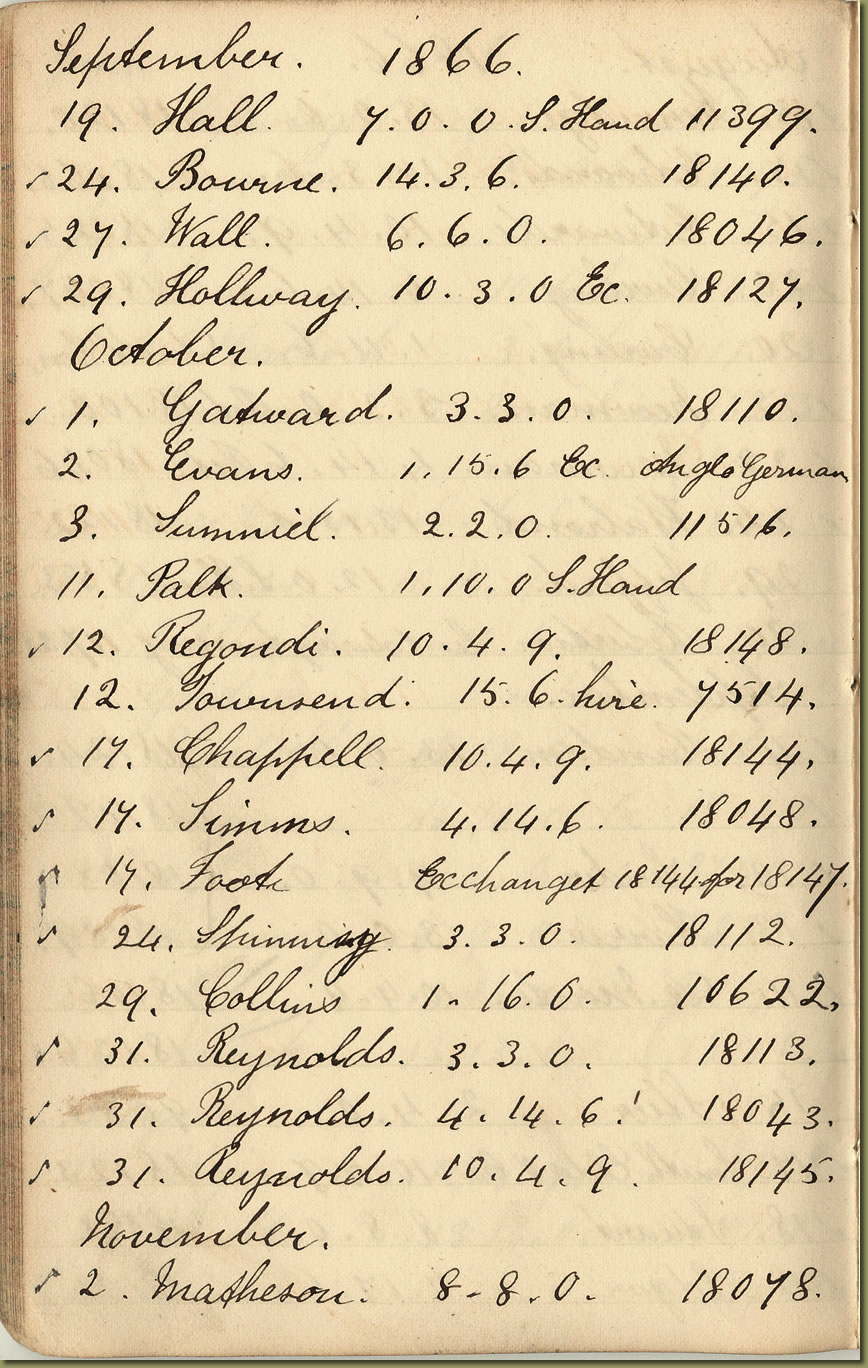 September. 1866.
19. Hall. 7.0.0. S. Hand 11399.
✓ 24. Bourne. 14.3.6. 18140.
✓ 27. Wall. 6.6.0. 18046.
✓ 29. Hollway. 10.3.0 Ec. 18127.
October.
✓ 1. Gatward. 3.3.0. 18110.
2. Evans. 1.15.6 Ec. Anglo German
3. 2.2.0. 11516.
11. Palk. 1.10.0 S. Hand
✓ 12. Regondi. 10.4.9. 18148.
12. Townsend. 15.6. hire. 7514.
✓ 17. Chappell. 10.4.9. 18144.
✓ 17. Simms. 4.14.6. 18048.
✓ 17. Foote Ecchanget 18144 for 18147.
✓ 24. 3.3.0. 18112.
29. Collins 1.16.0. 10622.
✓ 31. Reynolds. 3.3.0. 18113.
✓ 31. Reynolds. 4.14.6. 18043.
✓ 31. Reynolds. 10.4.9. 18145.
November.
✓ 2. Matheson. 8-8.0. 18078.